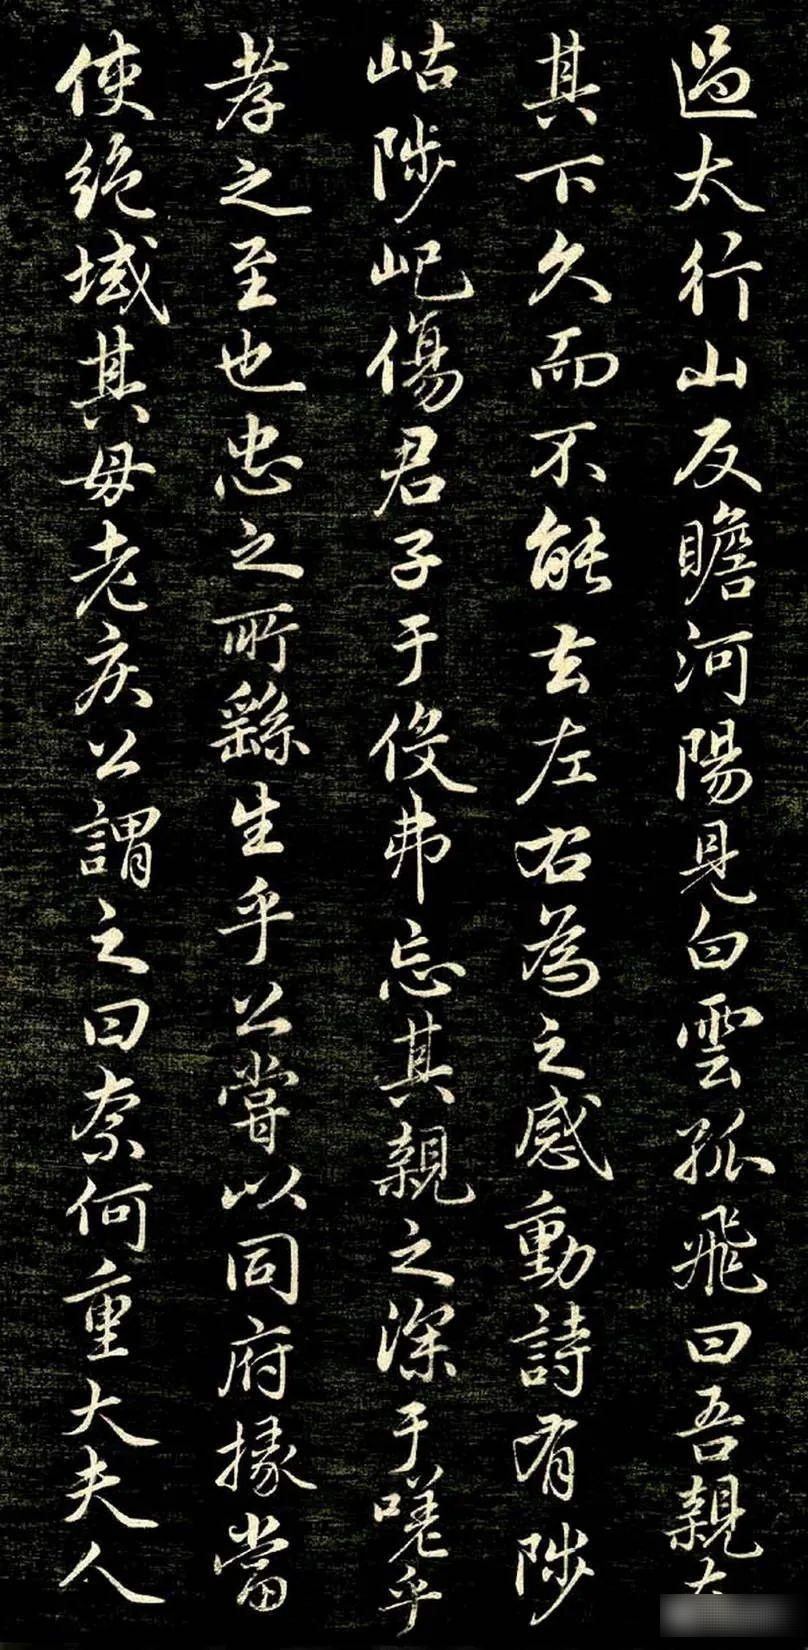 過太行山反瞻河陽見白雲孤飛曰吾親
其下久而不能去左右為之感動詩有陟
岵陟屺傷君子于役弗忘其親之深于嗟乎
孝之至也忠之所繇生乎公嘗以同府掾當
使絶域其母老疾公謂之曰奈何重大夫人